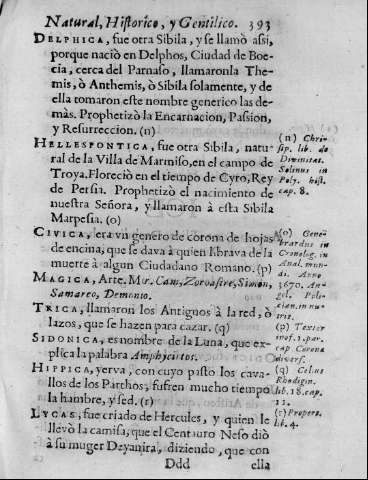 Natural, Historico, y Gentilico. 393
DELPHICA, fue otra Sibila, y se llamò assi,
porque naciò en Delphos, Ciudad de Boe-
cia, cerca del Parnaso, llamaronla The-
mis, ò Anthemis, ò Sibila solamente, y de
ella tomaron este nombre generico las de-
màs. Prophetizò la Encarnacion, Passion,
y Resurreccion. (n)
HELLESPONTICA, fue otra Sibila, natu-
ral de la Villa de Marmiso, en el campo de
Troya. Floreciò en el tiempo de Cyro, Rey
de Persia. Prophetizò el nacimiento de
nuestra Señora, y llamaron à esta Sibila
Marpesia. (o)
CIVICA, era vn genero de corona de hojas
de encina, que se dava à quien librava de la
muerte à algun Ciudadano Romano. (p)
MAGICA, Arte. Mr. Cam, Zoroastre, Simon,
Samareo, Demonio.
TRICA, llamaron los Antiguos à la red, ò
lazos, que se hazen para cazar. (q)
SIDONICA, es nombre de la Luna, que ex-
plica la palabra Amphycirtos.
HIPPICA, yerva, con cuyo pasto los cava-
llos de los Parthos, sufren mucho tiempo
la hambre, y sed. (r)
LYCAS, fue criado de Hercules, y quien le
llevò la camisa, que el Centauro Neso diò
à su muger Deyanira, diziendo, que con
Ddd ella
(n) Chri-
sip. lib. de
Divinitat.
Solinus in
Poly. hist.
cap. 8.
(o) Gene-
brardus in
Cronolog. in
Anal. mun-
di. Anno
3670. An-
gel. Poli-
cian. in nu-
tric.
(p) Textor
inof. 1. par.
cap Corona
diverf.
(q) Celius
Rhodigin.
lib. 18. cap.
12.
(r) Propert.
lib. 4.